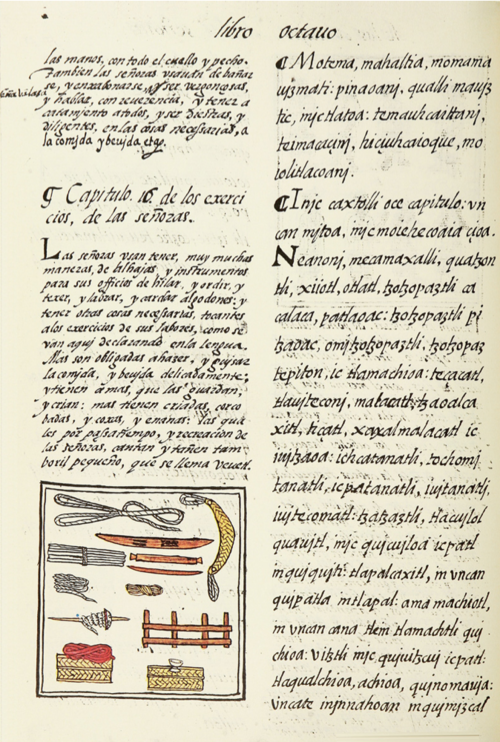 libro octauo
las manos, con todo el cuello y pecho.
Tambien las señoras vsauan de bañar
se, y enxabonarse, y ser vergonçosas,
y hablar, con reuerencia, y tener a
catamiento atodos, y ser diestras, y
diligentes, en las cosas necessarias, a
la comida y beuida etc.
¶ Capitulo .16. de los exerci
cios, de las señoras.
Las señoras vsan tener, muy muchas
maneras, de alhajas, y instrumentos
para sus officios de hilar, y ordir, y
texer, y labrar, y cardar algodones: y
tener otras cosas necessarias, tocantes
alos exercicios de sus labores, como se
van aqui declarando en la lengua.
Mas son obligadas a hazer, y guisar
la comida, y beuida delicadamente:
y tienen amas, que las guardan,
y crian: mas tienen criadas, corco
badas, y coxas, y enanas: las qua
les por passatiempo, y recreacion de
las señoras, cantan y tañen tam
boril pequeño, que se llama veuetl.
¶ Motema, mahaltia, momama
uizmati: pinaoani, qualli mauiz
tic, injc tlatoa: temauhcaittani,
teimacacini, hiciuhcaioque, mo
iolitlacoani.
¶ Injc caxtolli oce capitulo: vn
can mjtoa, injc moiehecoaia cioa.
Neanonj, mecamaxalli, quatzon
tli, xiiotl, otlatl, tzotzopaztli ca
calaca, patlaoac: tzotzopaztli pi
tzaoac, omitzotzopaztli, tzotzopaz
tepiton, ic tlamachioa: tecacatl,
tlauiteconj, malacatl, tzaoalca
xitl, ticatl, xaxalmalacatl ic
iuitzaoa: ichcatanatli, tochomj
tanatli, icpatanatli, iuitanatli,
iuitecomatl: tzatzaztli, tlacuilol
quauitl, injc quicuiloa icpatl
in quiquiti: tlapalcaxitl, in vncan
quipatla intlapal: ama machiotl,
in vncan cana tlein tlamachtli qui
chioa: vitztli injc quiuitzcui icpatl:
tlaqualchioa, achioa, quinomauja:
vncate innnahoan inquimizcal